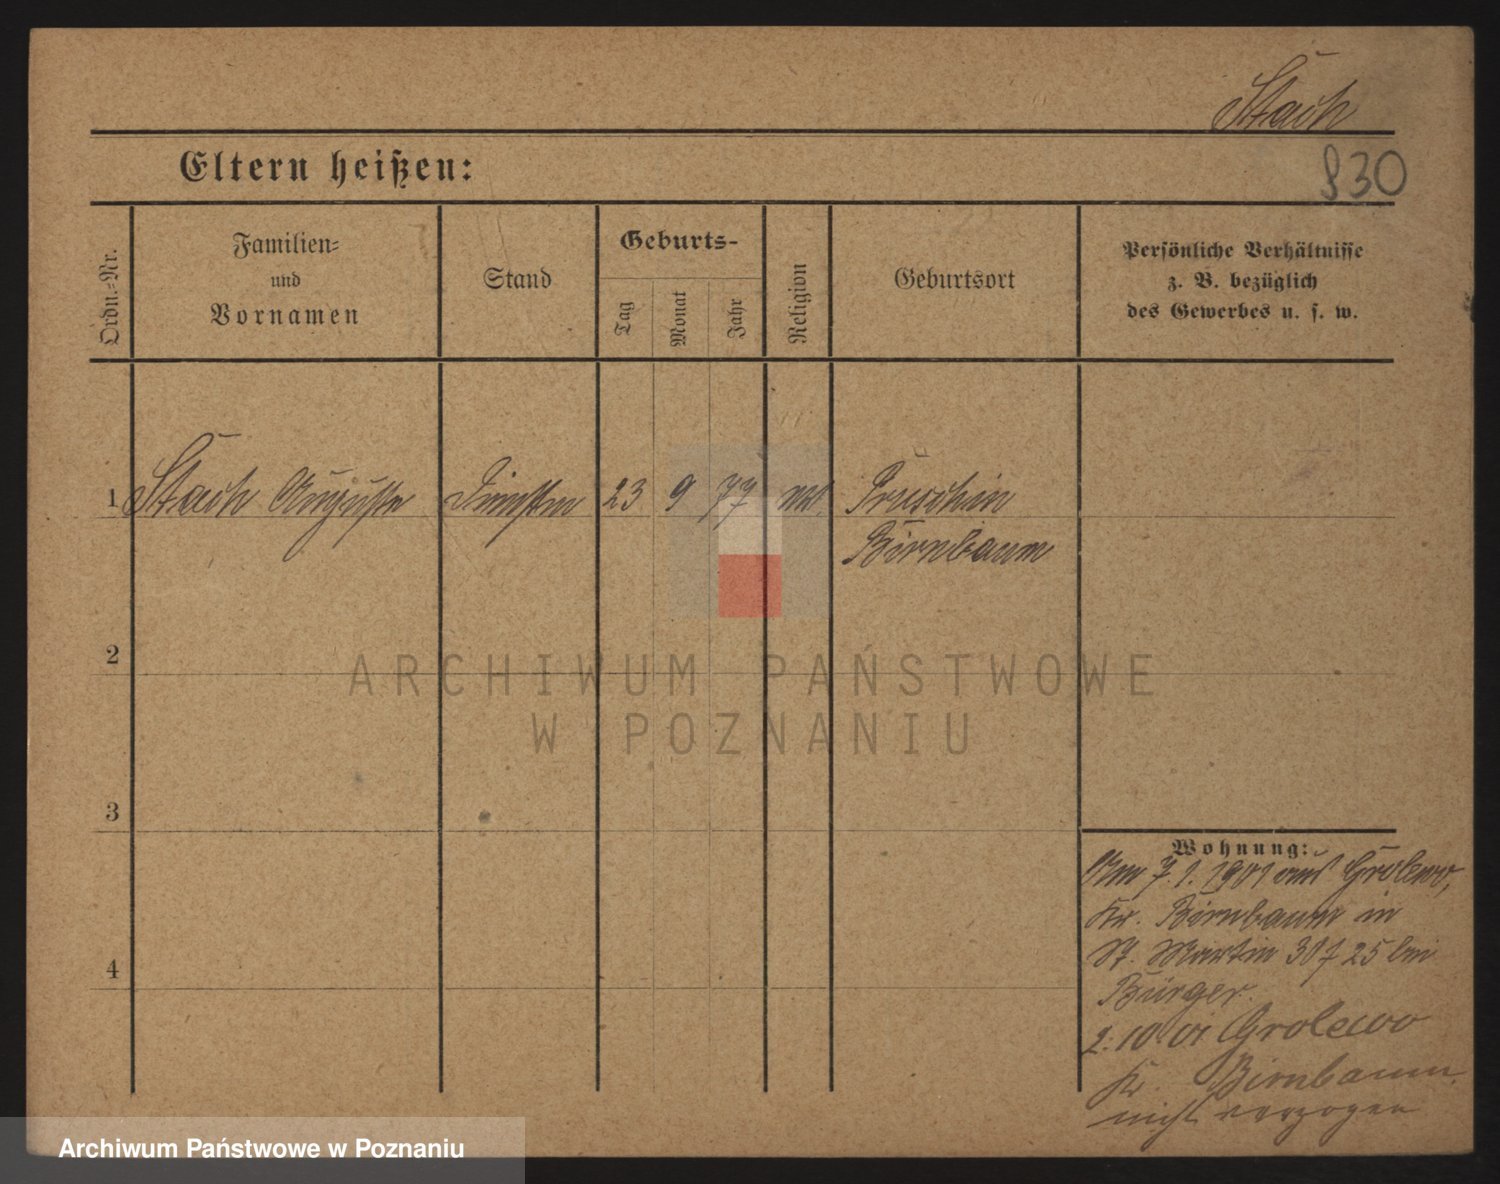 Stach
Eltern heißen:
830
Ordn.-Nr.
Familien-
und
Vornamen
Stand
Geburts-
Tag
Monat
Jahr
Religion
Geburtsort
Persönliche Verhältnisse
z. B. bezüglich
des Gewerbes u. s. w.
1 Stach Auguste 23 9 77 Pruschin
Birnbaum
2
ARCHIWUM PAŃSTWOWE
W POZNANIU
3
4
Wohnung:
Am 7. 1. 1901 aus Grolewo,
Kr. Birnbaum in
St. Martin 25 bei
Bürger.
10 Grolewo
Kr. Birnbaum
nicht verzogen
Archiwum Państwowe w Poznaniu